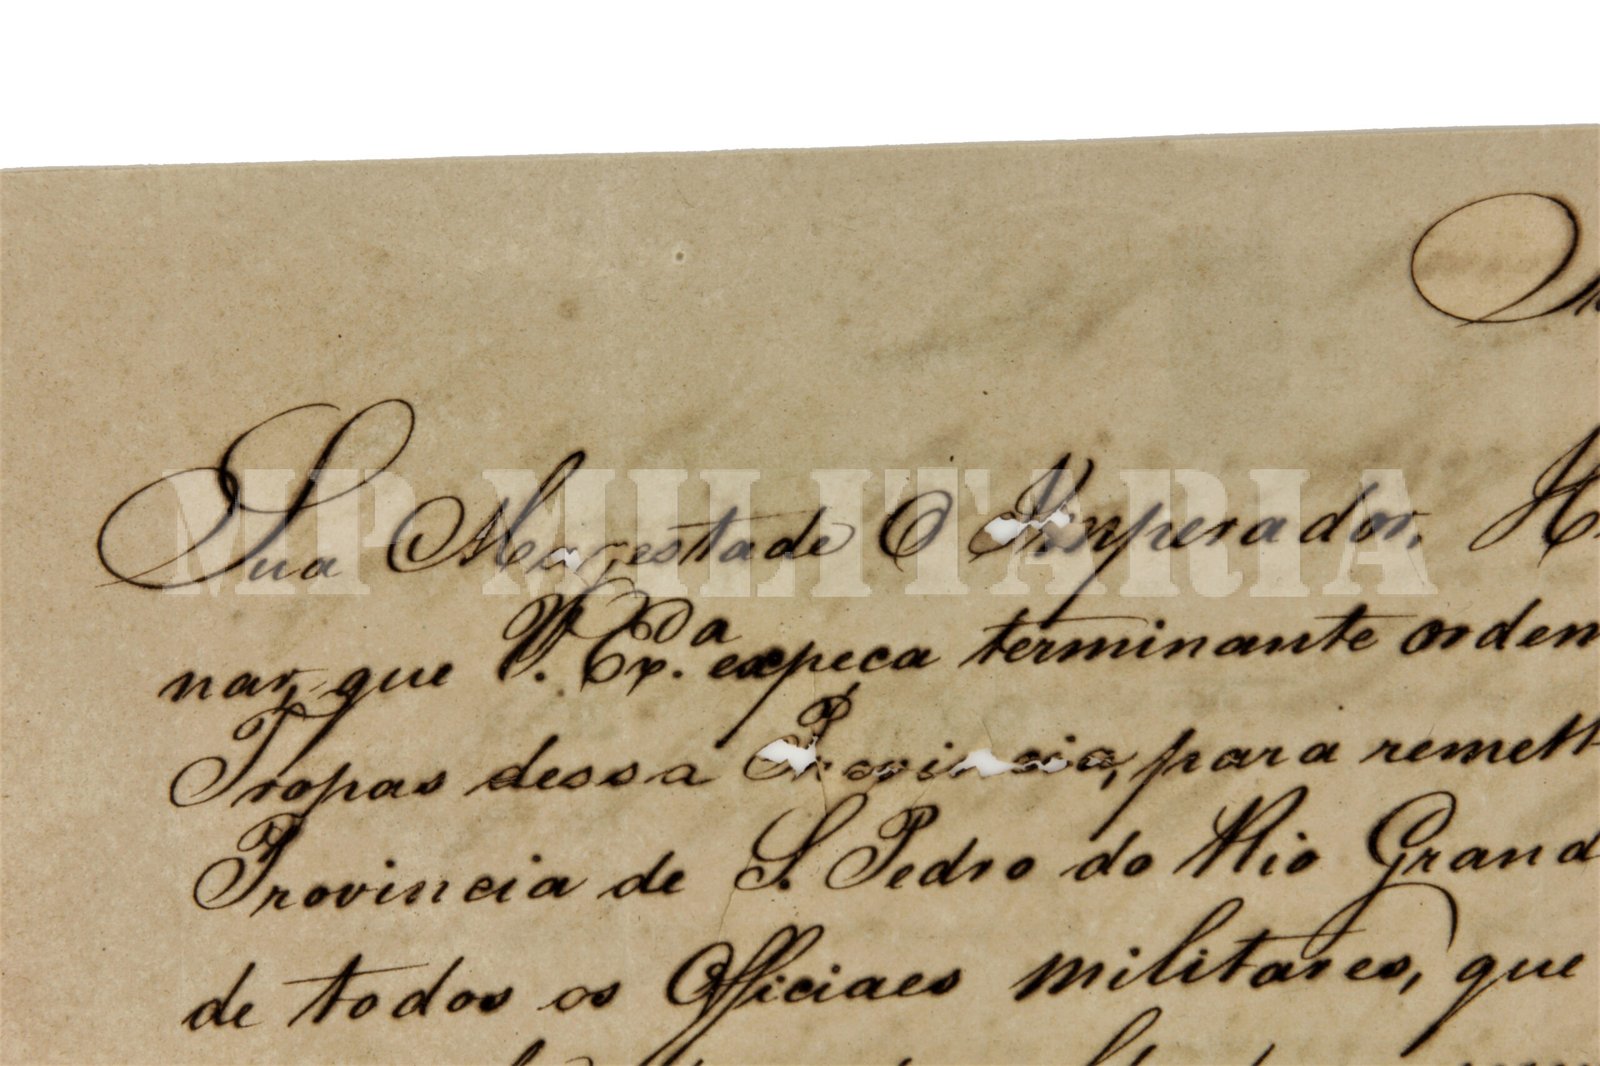 Sua Magestade O Imperador, H
nar, que V. Ex.ª expeça terminante orden
Tropas dessa Provincia, para remett
Provincia de S. Pedro do Rio Grand
de todos os Officiaes militares, que
MP MILITARIA